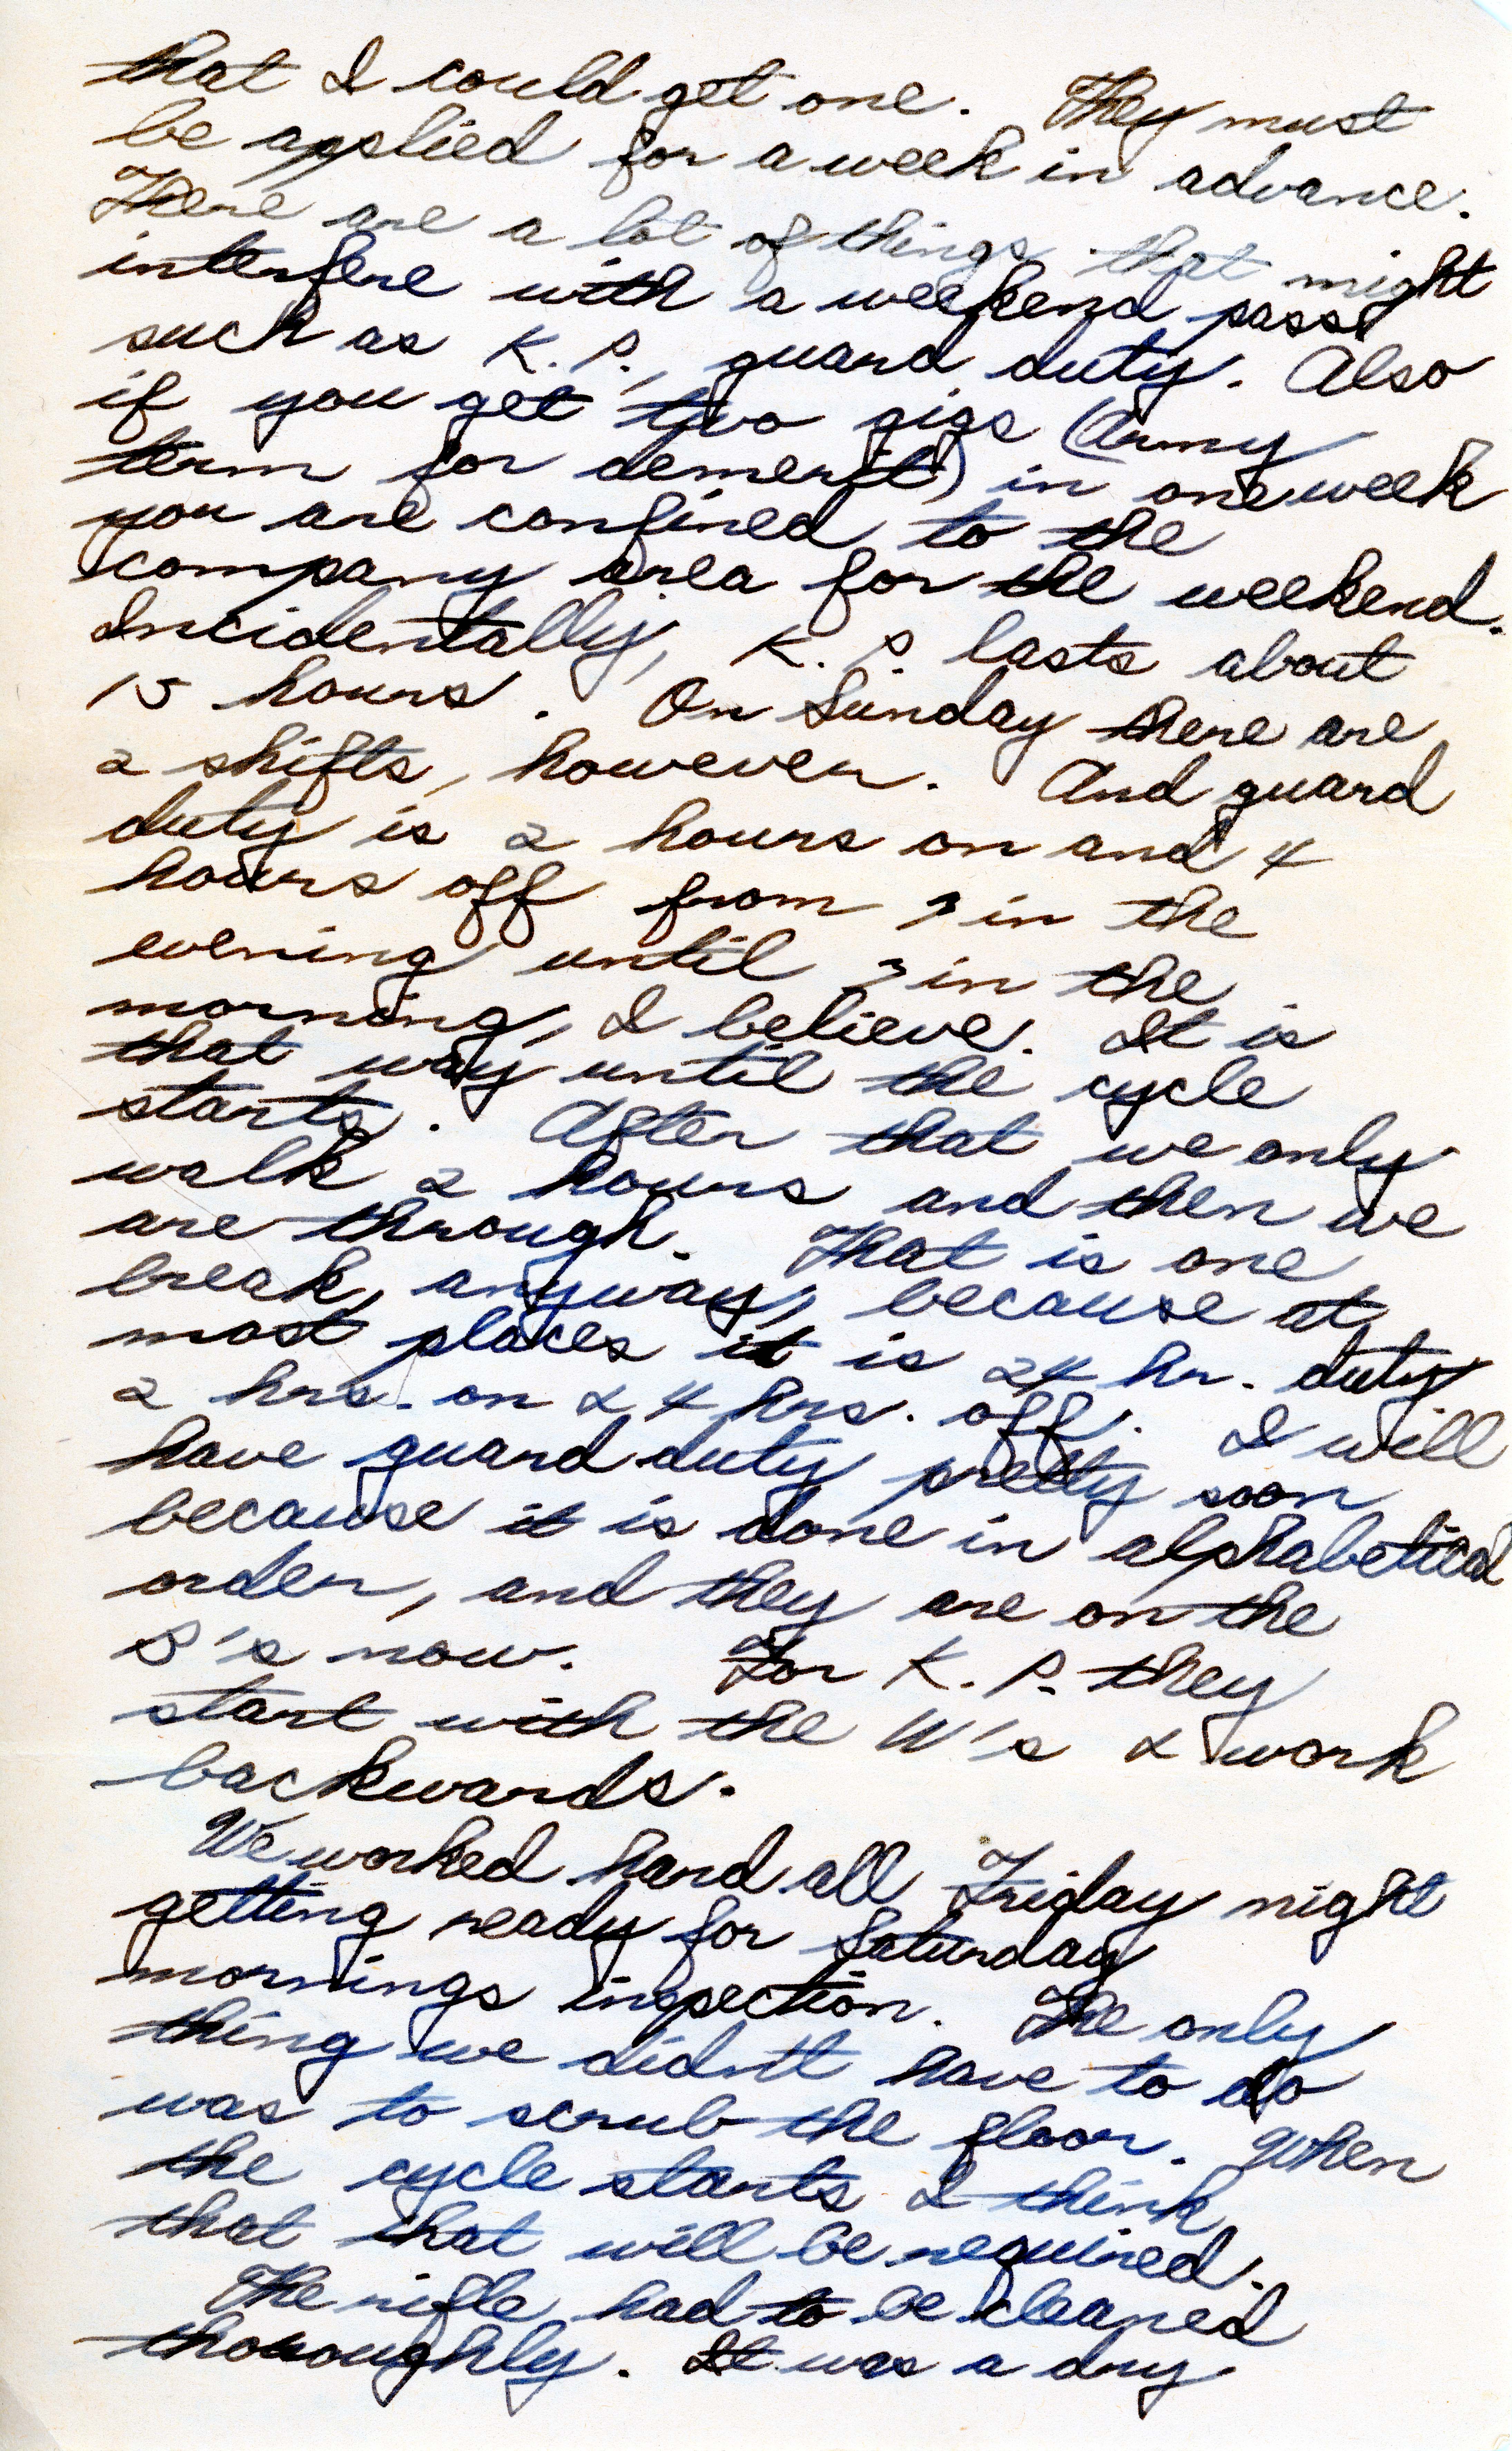 that I could get one. They must
be applied for a week in advance.
There are a lot of things that might
interfere with a weekend pass
such as K.P., guard duty. Also
if you get two gigs (Army
term for demerit) in one week
you are confined to the
company area for the weekend.
Incidentally, K.P. lasts about
15 hours. On Sunday there are
2 shifts, however. And guard
duty is 2 hours on and 4
hours off from in the
evening until in the
morning, I believe. It is
that way until the cycle
starts. After that we only
walk 2 hours and then we
are through. That is one
break, anyway, because at
most places it is 24 hr. duty
2 hrs. on & 4 hrs. off. I will
have guard duty pretty soon
because it is done in alphabetical
order, and they are on the
S's now. For K.P. they
start with the W's & work
backwards.
We worked hard all Friday night
getting ready for Saturday
mornings inspection. The only
thing we didn't have to do
was to scrub the floor. When
the cycle starts I think
that that will be required.
The rifle had to be cleaned
thoroughly. It was a dry